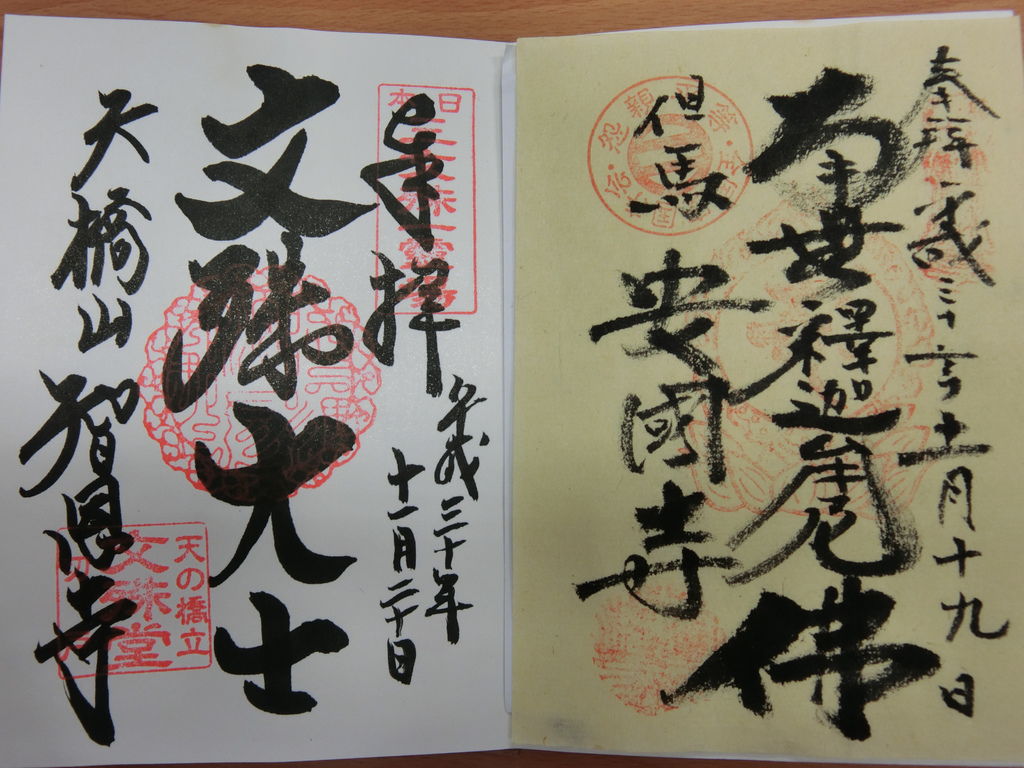 奉拝 平成三十年十一月十九日
南無釋迦牟尼佛
但馬
安國寺
奉拝
平成三十年
十一月二十日
日本
文殊大士
天橋山 智恩寺
天の橋立
文殊堂